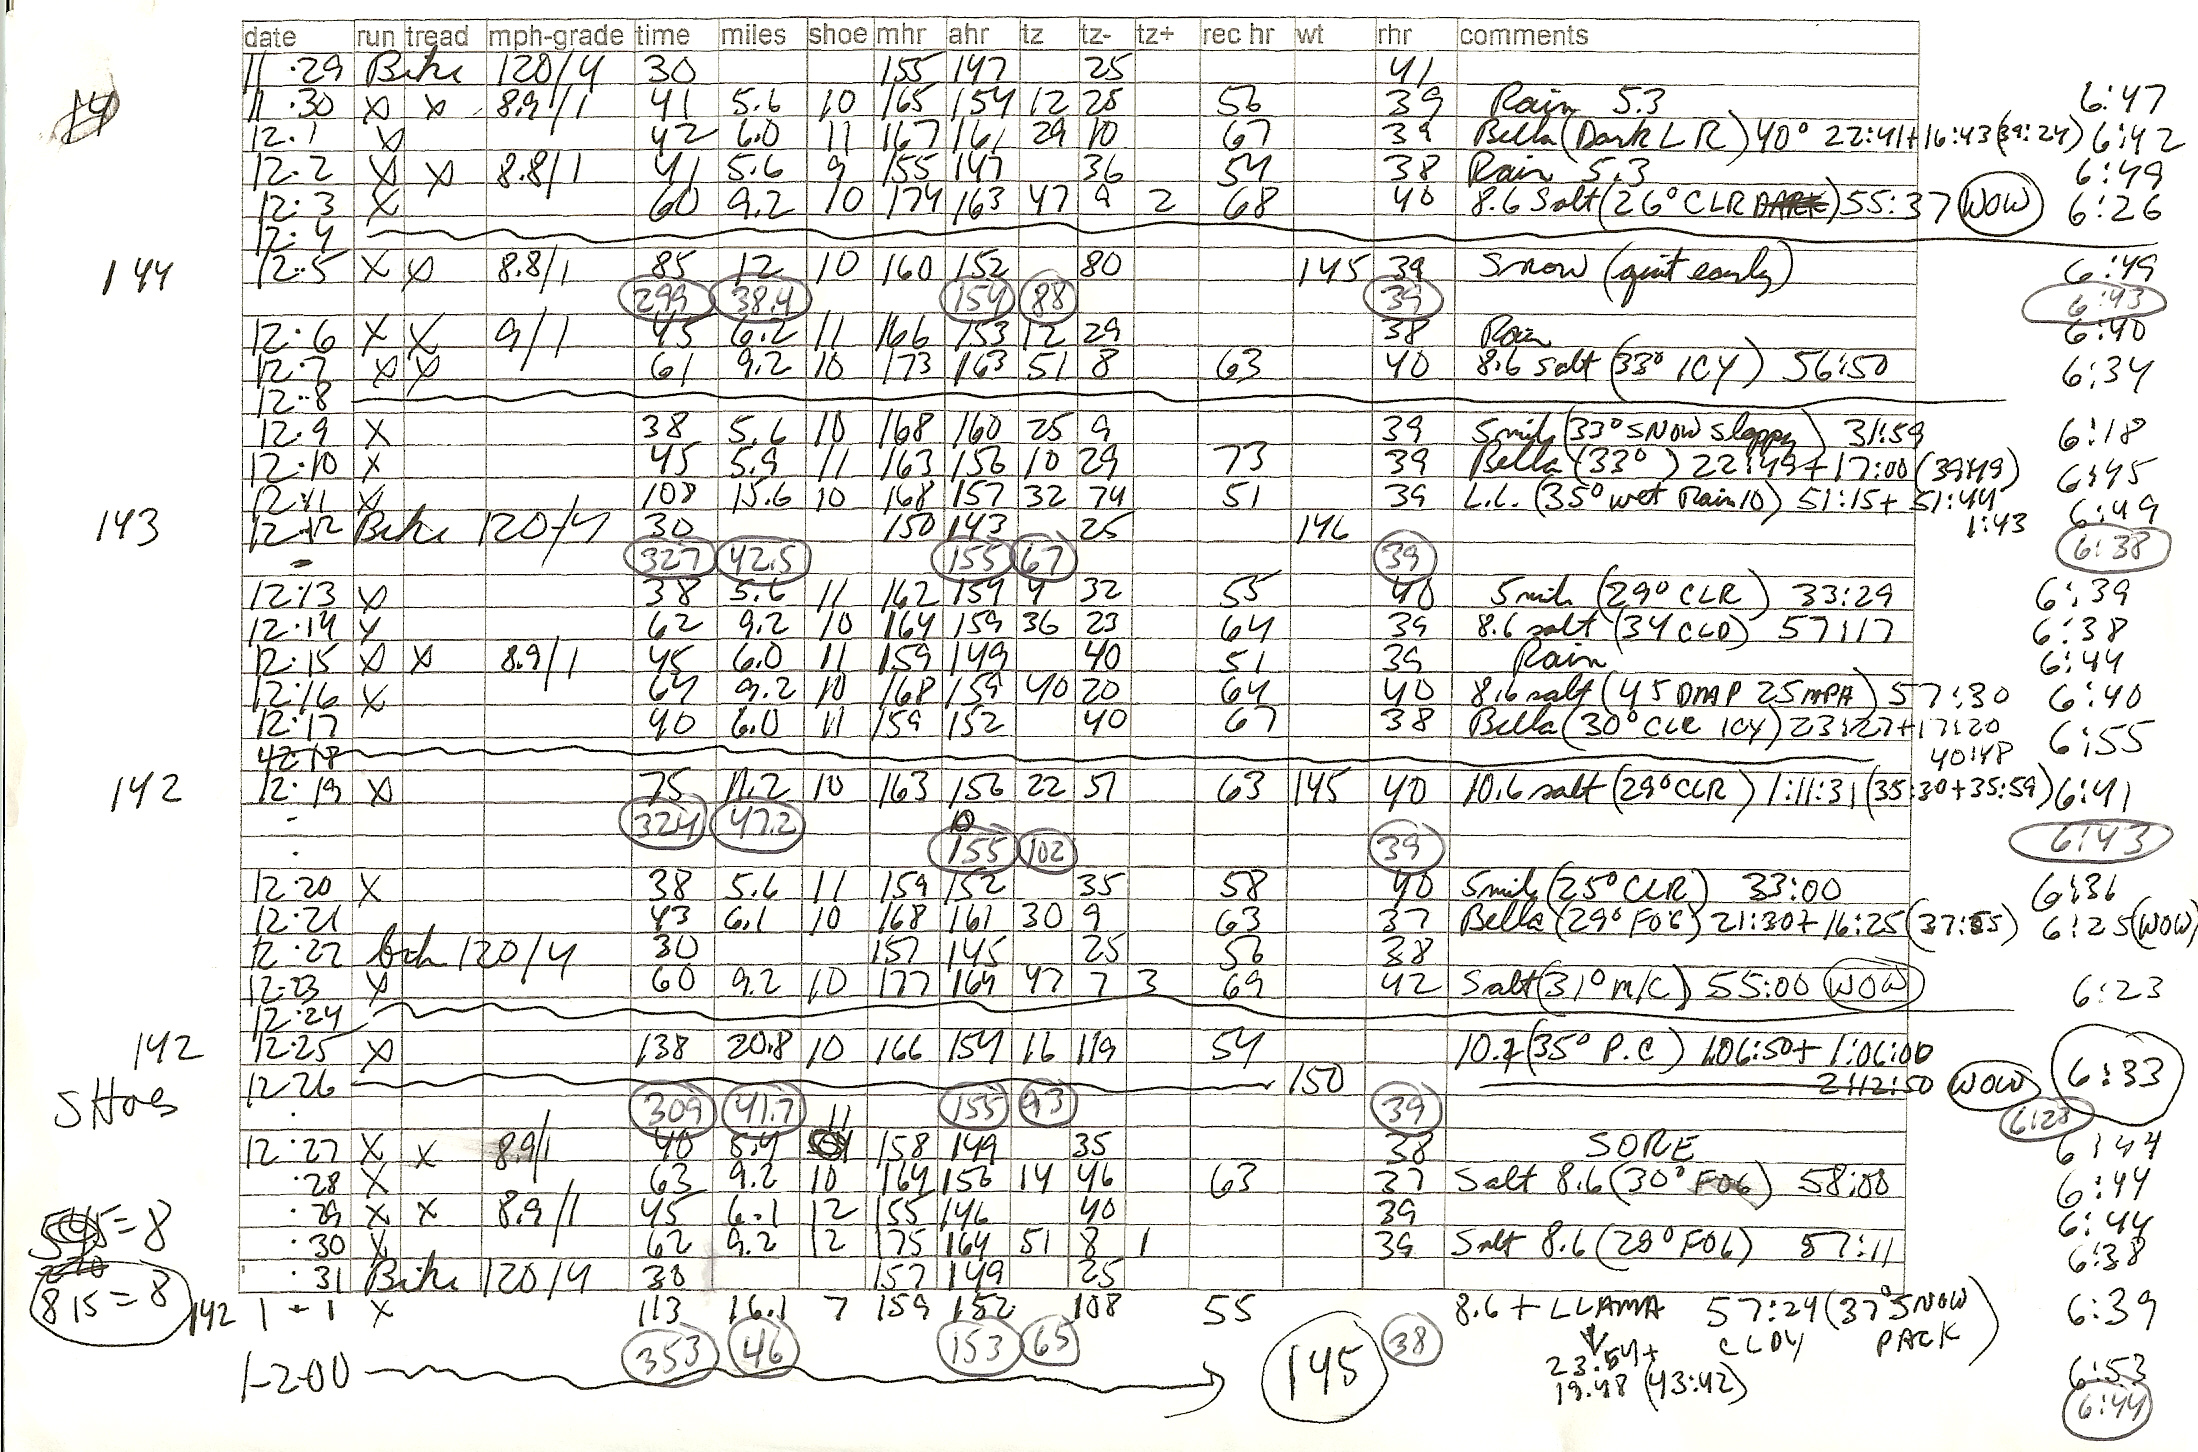 date run tread mph-grade time miles shoe mhr ahr tz tz- tz+ rec hr wt rhr comments
11·29 Bike 120/4 30 155 147 25 41
14
11·30 x x 8.9/1 41 5.6 10 165 154 12 28 56 39 Rain 5.3 6:47
12·1 x 42 6.0 11 167 161 29 10 67 39 Bella (Dark L R) 40° 22:41+16:43 (39:24) 6:42
12·2 x x 8.8/1 41 5.6 9 155 147 36 54 38 Rain 5.3 6:49
12·3 x 60 9.2 10 174 163 47 9 2 68 40 8.6 Salt (26° CLR) 55:37 WOW 6:26
12·4
144 12·5 x x 8.8/1 85 12 10 160 152 80 145 39 Snow (quit early) 6:49
299 38.4 154 88 39 6:43
12·6 x x 9/1 45 6.2 11 166 153 12 29 38 Rain 6:40
12·7 x x 61 9.2 10 173 163 51 8 63 40 8.6 salt (33° ICY) 56:50 6:34
12·8
12·9 x 38 5.6 10 168 160 25 9 39 5 mile (33° SNOW sloppy) 31:59 6:18
12·10 x 45 5.9 11 163 156 10 29 73 39 Bella (33°) 22:49+17:00 (39:49) 6:45
12·11 x 108 15.6 10 168 157 32 74 51 39 L.L. (35° wet Rain 10) 51:15+51:44 6:49
143 12·12 Bike 120/4 30 150 143 25 146 1:43
327 42.5 155 67 39 6:38
12·13 x 38 5.6 11 162 154 4 32 55 40 5 mile (29° CLR) 33:29 6:39
12·14 x 62 9.2 10 164 159 36 23 64 39 8.6 salt (34 CLD) 57:17 6:38
12·15 x x 8.9/1 45 6.0 11 159 149 40 51 39 Rain 6:44
12·16 x 64 9.2 10 168 159 40 20 64 40 8.6 salt (45 DMAP 25 MPH) 57:30 6:40
12·17 40 6.0 11 159 152 40 67 38 Bella (30° CLR ICY) 23:27+17:20 6:55
12·18 40:48
142 12·19 x 75 11.2 10 163 156 22 51 63 145 40 10.6 salt (29° CLR) 1:11:31 (35:30+35:59) 6:41
324 47.2
155 102 39 6:43
12·20 x 38 5.6 11 159 152 35 58 40 5 mile (25° CLR) 33:00 6:36
12·21 43 6.1 10 168 161 30 9 63 37 Bella (29° FOG) 21:30+16:25 (37:55) 6:25 (WOW)
12·22 bik 120/4 30 157 145 25 56 38
12·23 x 60 9.2 10 177 164 47 7 3 69 42 Salt (31° M/C) 55:00 WOW 6:23
12·24
142 12·25 x 138 20.8 10 166 154 16 119 54 10.7 (35° P.C) 1:06:50+1:06:00 6:33
12·26 150 2:12:50 WOW
SHoes 309 41.7 155 93 39 6:28
12·27 x x 8.9/1 40 5.4 11 158 149 35 38 SORE 6:44
·28 x 63 9.2 10 164 156 14 46 63 37 Salt 8.6 (30° FOG) 58:00 6:44
·29 x x 8.9/1 45 6.1 12 155 146 40 39 6:44
545=8 ·30 x 62 9.2 12 175 164 51 8 1 39 Salt 8.6 (28° FOG) 57:11 6:38
·31 Bike 120/4 30 157 149 25
815=8 142 1-1 x 113 16.1 7 159 152 108 55 8.6 + LLAMA 57:24 (37° SNOW 6:39
353 46 153 65 145 38 CLDY PACK)
1-2-00 23:54+ 6:53
19:48 (43:42) 6:44